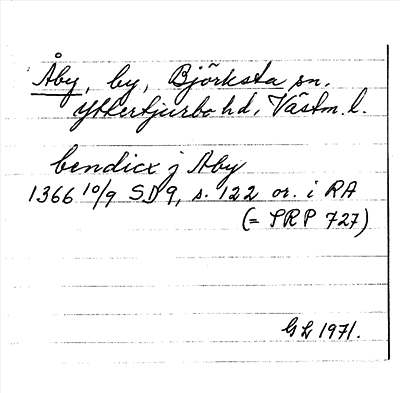 Åby, by, Björksta sn.
Yttertjurbo hd, Västm. l.
bendicx j Aby
1366 10/9 SD 9, s. 122 or. i RA
(= SRP 727)
G L 1971.